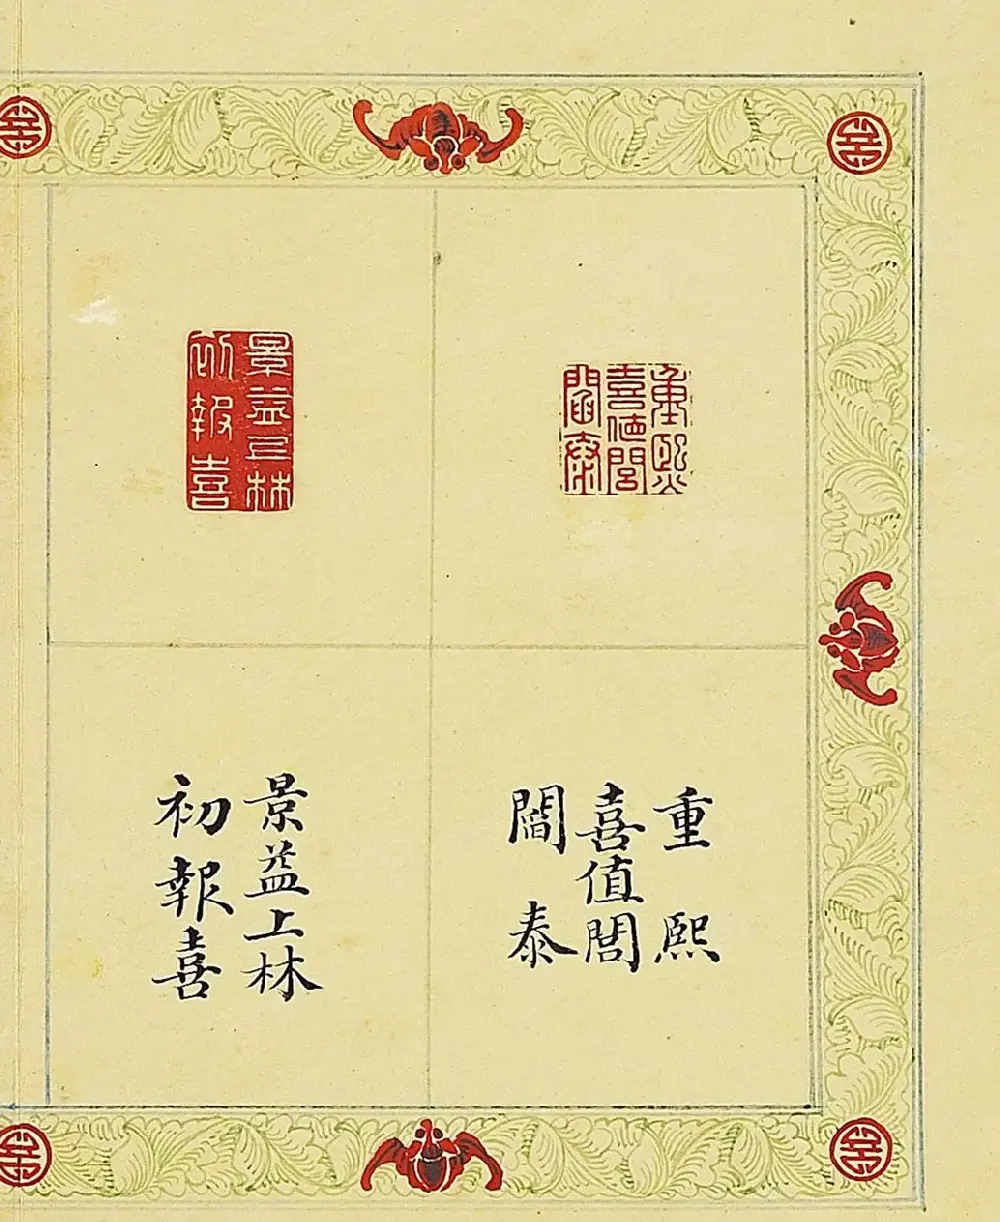 重熙
喜值閶
闔泰
景益上林
初報喜
重熙
喜值閶
闔泰
景益上林
初報喜